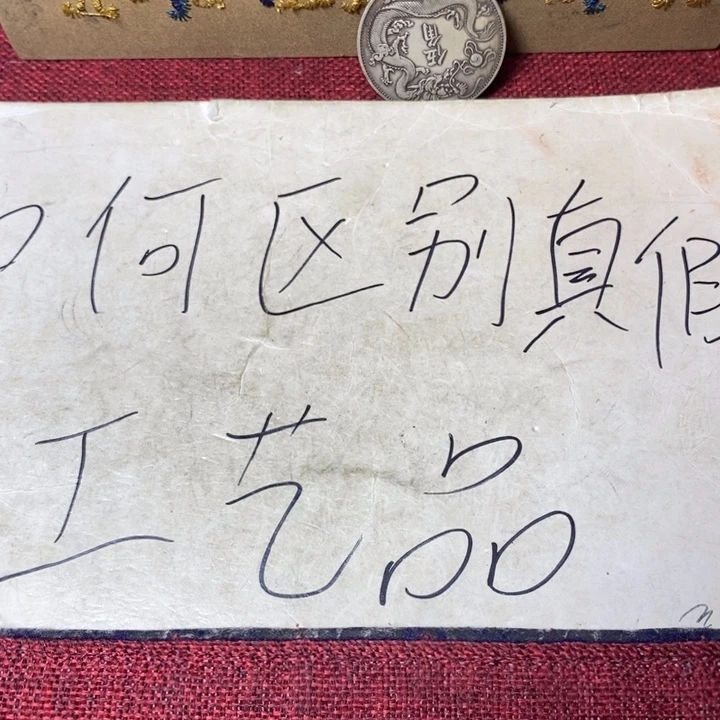 如何区别真假
工艺品